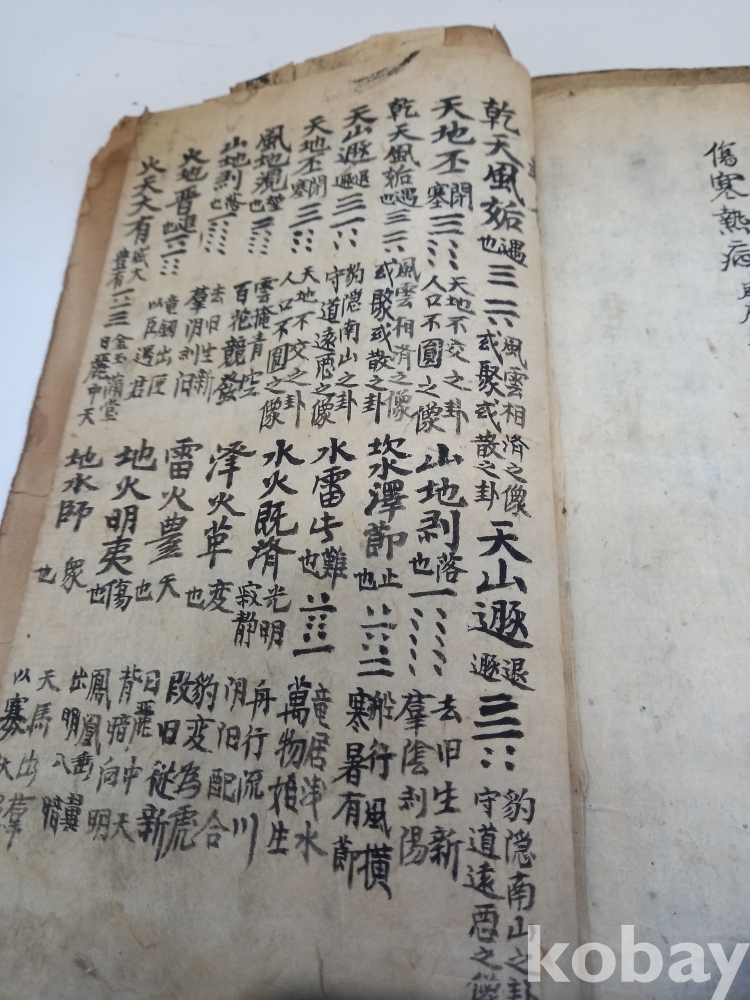 傷寒熱病
乾天風姤 遇也 風雲相済之像 或聚或散之卦 天山遯 退遯 豹隐南山之卦 守道遠悪之像
天地丕 閉塞 天地不交之卦 人口不圓之像 山地剥 落也 去旧生新 羣陰剥陽
乾天風姤 遇也 風雲相済之像 或聚或散之卦 坎水澤節 止也 船行風橫 寒暑有節
天山遯 退遯 豹隐南山之卦 守道遠悪之像 水雷屯 難也 竜居浅水 萬物始生
天地丕 閉塞 天地不交之卦 人口不圓之像 水火既済 光明 寂静 舟行流川 阴阳配合
風地觀 也 雲掩青空 百花競發 澤火革 变也 豹变為虎 改旧従新
山地剥 落也 去旧生新 羣阴剥阳 雷火豊 天也 日麗中天 背暗向明
火地晋 進也 竜釼出匣 以臣遇君 地火明夷 傷也 鳳凰垂翼 出明入暗
火天大有 盛大 豊有 金玉滿堂 日麗中天 地水師 衆也 天馬出羣 以寡
kobay